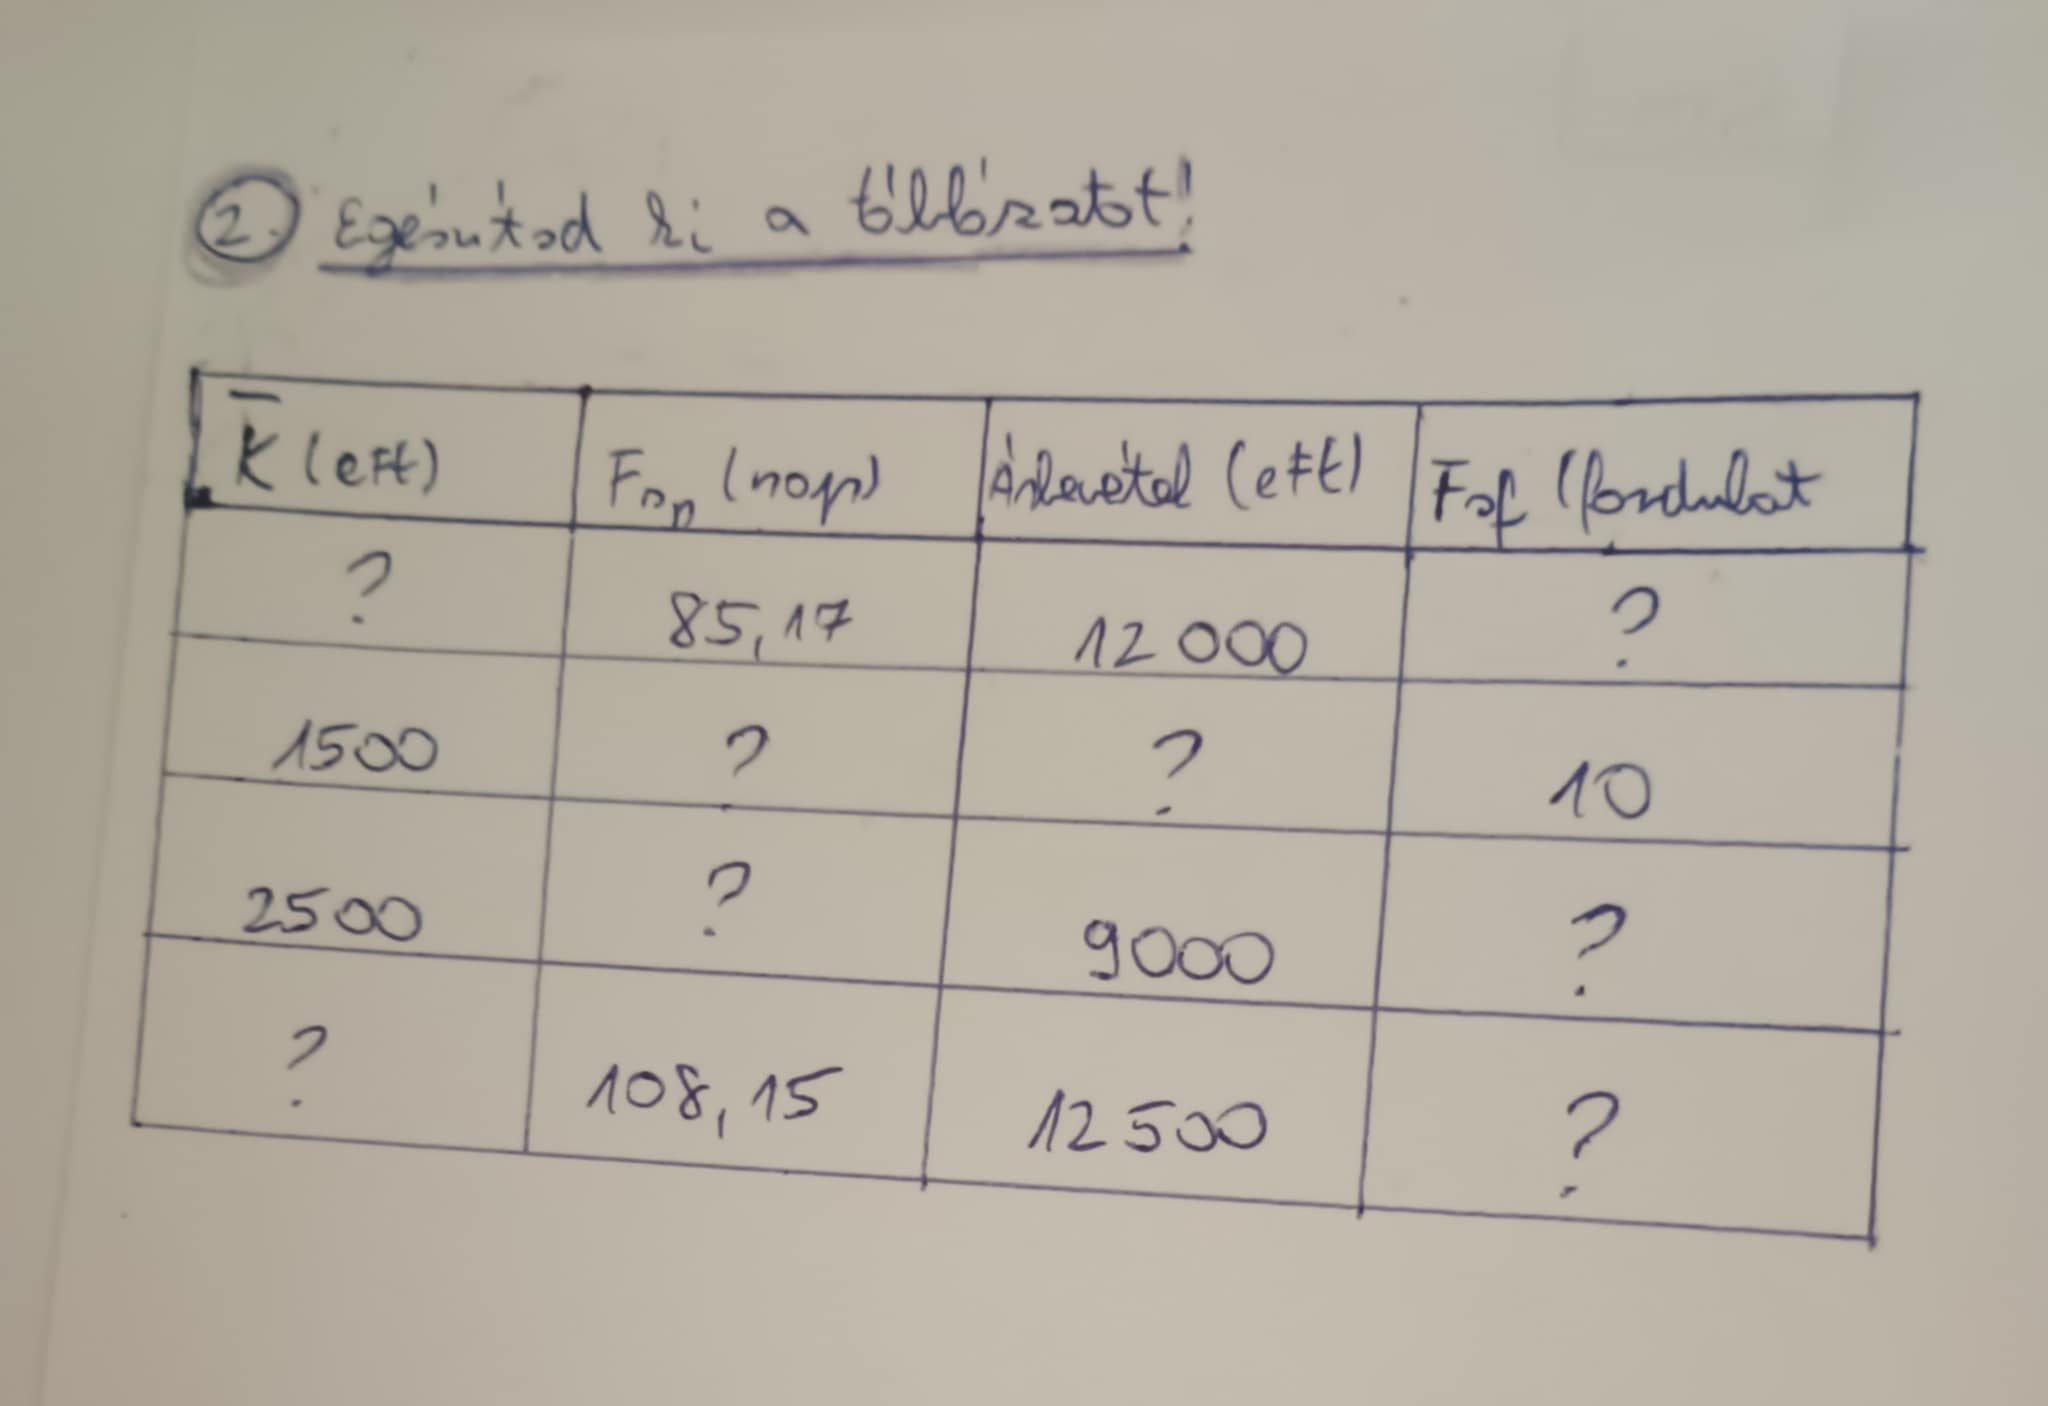 2. Egészítsd ki a táblázatot!
K̅ (eFt) Fsn (nap) Árbevétel (eFt) Fsf (fordulat
? 85,17 12 000 ?
1500 ? ? 10
2500 ? 9000 ?
? 108,15 12 500 ?